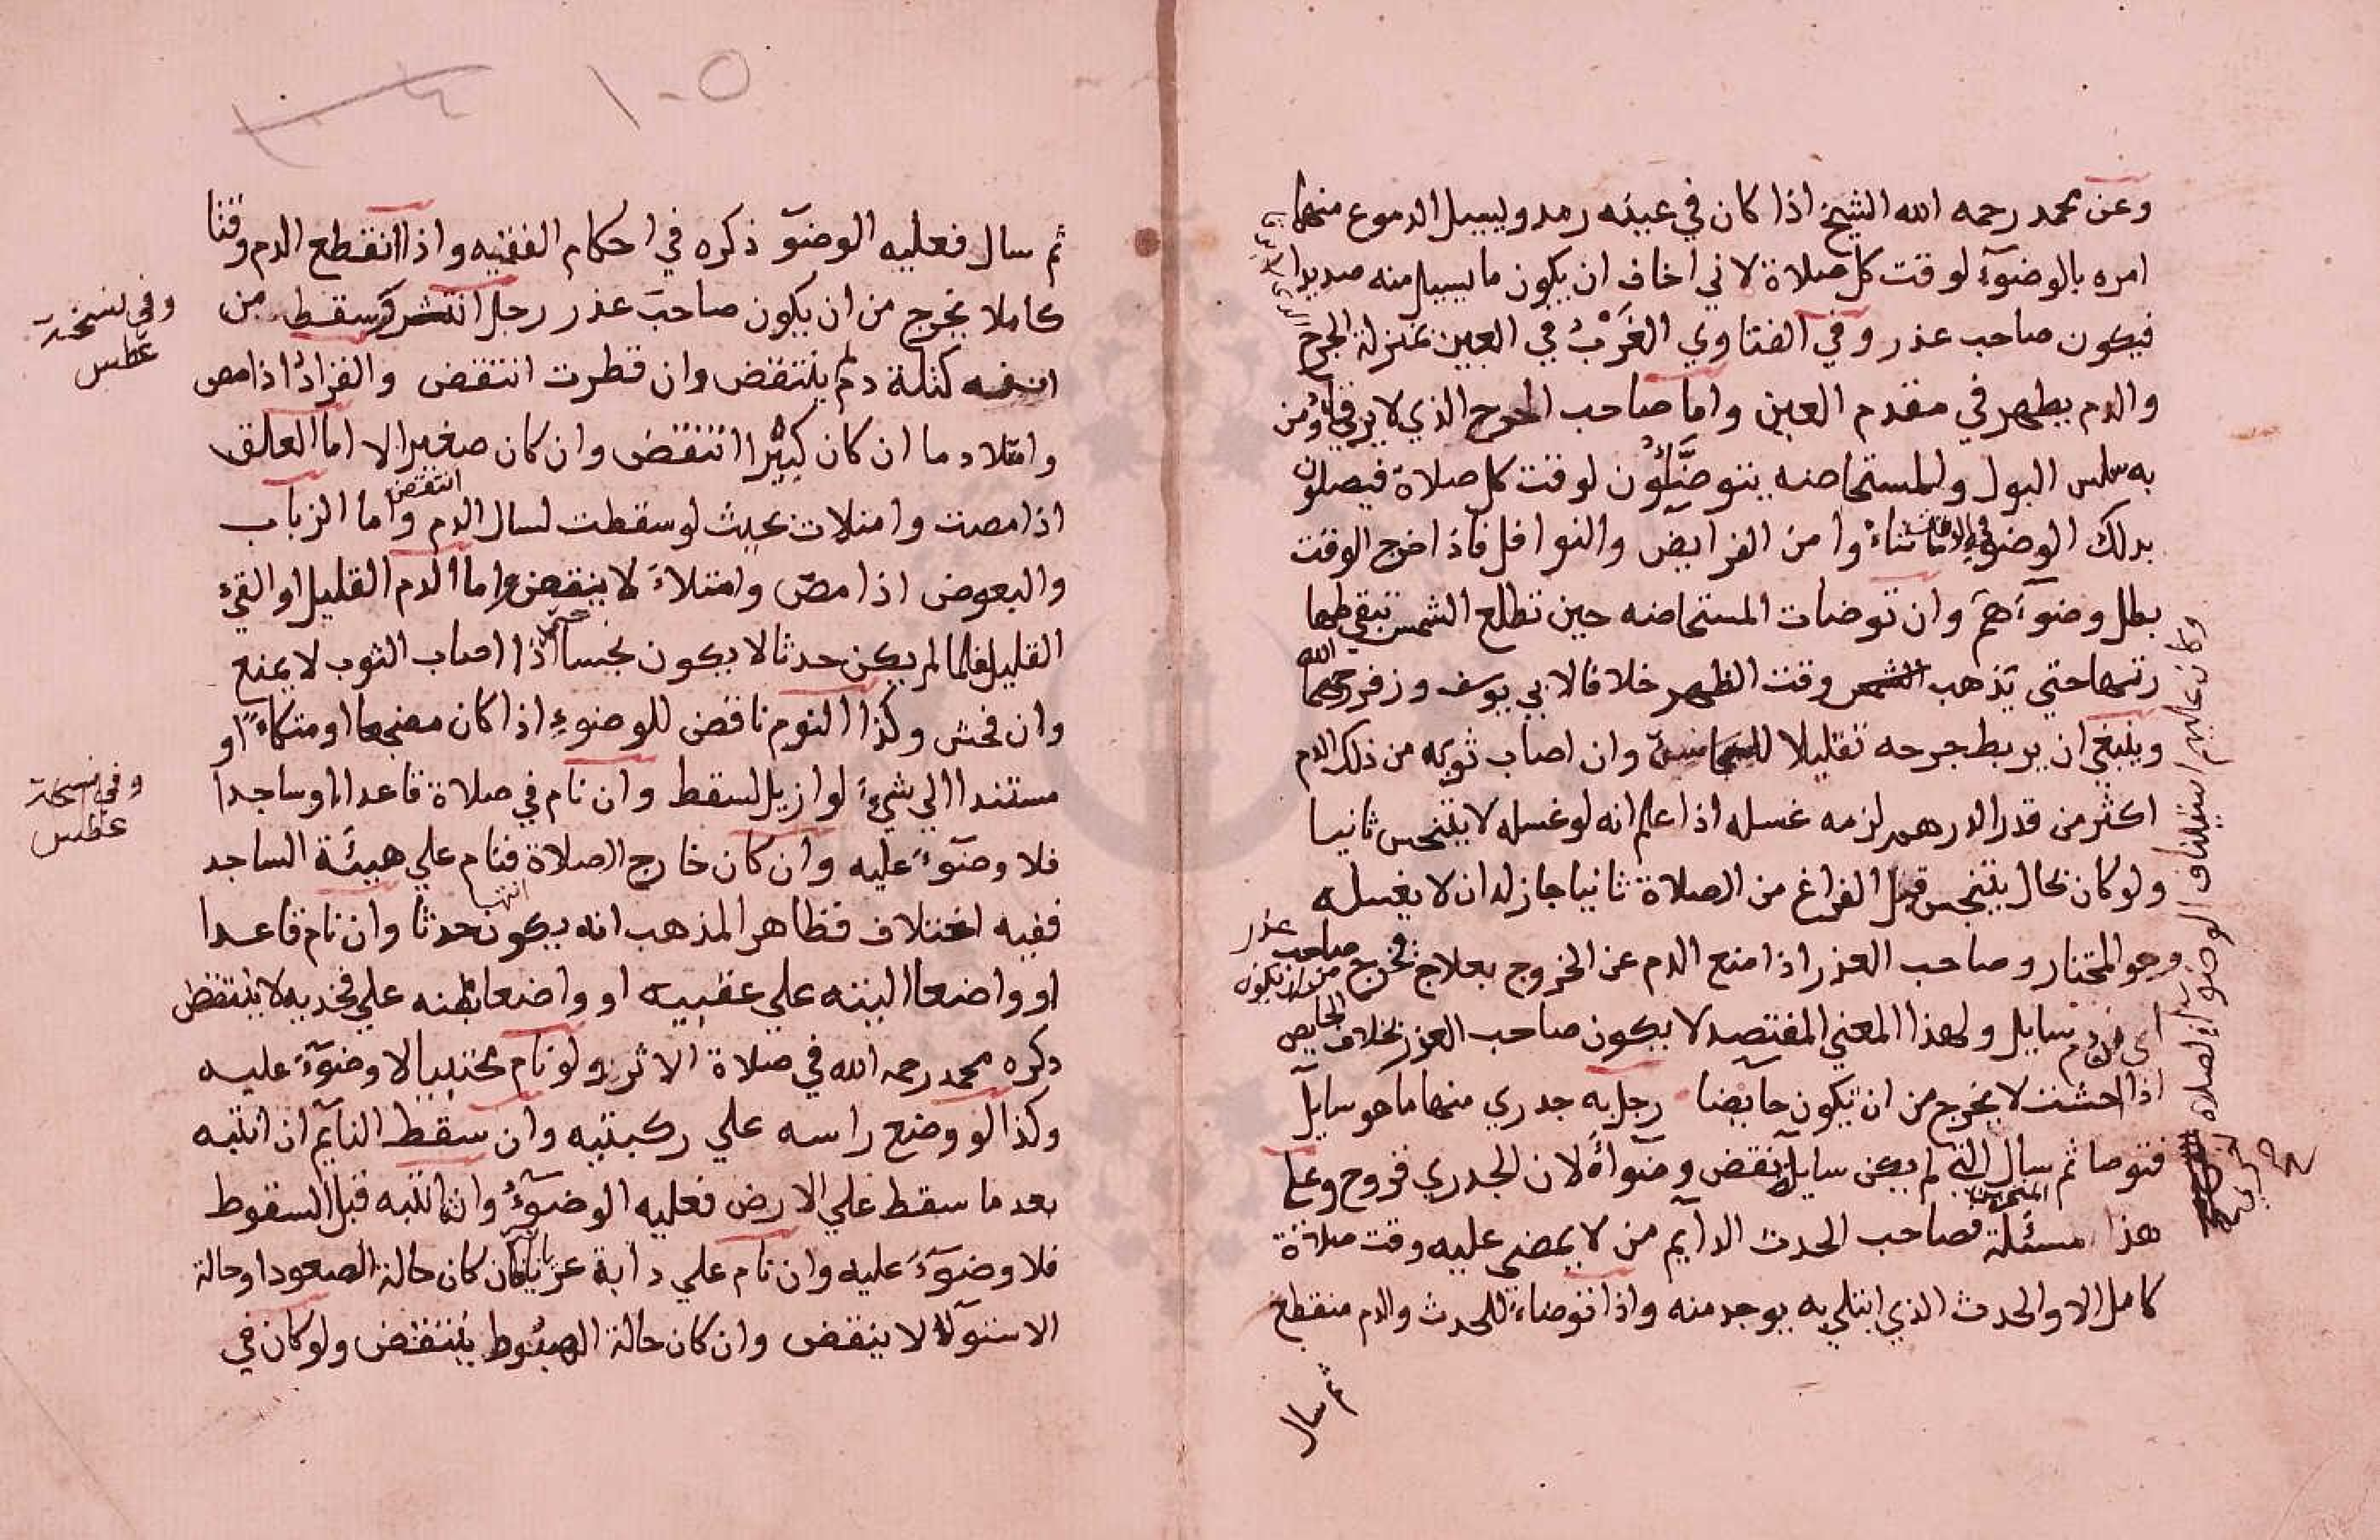 وعن محمد رحمه الله الشيخ اذا كان في عينه رمد ويسيل الدموع منهما
امره بالوضوء لوقت كل صلاة لاني اخاف ان يكون ما يسيل منه صديدا
فيكون صاحب عذر وفي الفتاوي الغَرْبُ في العين بمنزلة الجرح
والدم يظهر في مقدم العين واما صاحب الجرح الذي لا يرقا ومن
به سلس البول والمستحاضه يتوضئون لوقت كل صلاة فيصلون
بذلك الوضوء في الوقت ما شاءوا من الفرايض والنوافل فاذا خرج الوقت
بطل وضوءهم وان توضات المستحاضه حين تطلع الشمس تبقي طها
رتها حتي يذهب وقت الظهر خلافا لابي يوسف وزفر رحمهما الله
وينبغي ان يربط جرحه تقليلا للنجاسة وان اصاب ثوبه من ذلك الدم
اكثر من قدر الدرهم لزمه غسله اذا علم انه لو غسله لا يتنجس ثانيا
ولو كان بحال يتنجس قبل الفراغ من الصلاة ثانيا جاز له ان لا يغسله
وهو المختار وصاحب العذر اذا منع الدم عن الخروج بعلاج يخرج من ان يكون صاحب عذر
اي من دم سايل ولهذا المعني المفتصد لا يكون صاحب العذر بخلاف الحايض
اذا احتشت لا يخرج من ان تكون حايضا رجل به جدري منها ما هو سايل
فتوضا ثم سال التي لم يكن سايلا نقض وضوأه لان الجدري قروح وعلي
هذا مسئلة المنخرين فصاحب الحدث الدايم من لا يمضي عليه وقت صلاة
كامل الا والحدث الذي ابتلي به يوجد منه واذا توضاء للحدث والدم منقطع
ثم سال
ثم سال فعليه الوضوء ذكره في احكام الفقيه واذا انقطع الدم وقتا
كاملا يخرج من ان يكون صاحب عذر رجل انتثر فسقط من
انفه كتلة دم لم ينتقض وان قطرت انتقض والقراد اذا مص
وامتلا دما ان كان كبيرا انتقض وان كان صغيرا لا اما العلق
اذا مصت وامتلات بحيث لو سقطت لسال الدم انتقض واما الزباب
والبعوض اذا مص وامتلاء لا ينقض واما الدم القليل او القيء
القليل فلما لم يكن حدثا لا يكون نجسا حتي اذا اصاب الثوب لا يمنع
وان فحش وكذا النوم ناقض للوضوء اذا كان مضجعا او متكاء او
مستندا الي شيء لو ازيل لسقط وان نام في صلاة قاعدا او ساجدا
فلا وضوء عليه وان كان خارج الصلاة فنام علي هيئة الساجد
ففيه اختلاف فظاهر المذهب انه يكون حدثا انتها وان نام قاعدا
او واضعا اليته علي عقبيه او واضعا بطنه علي فخذيه لا ينتقض
ذكره محمد رحمه الله في صلاة الاثر ولو نام محتبيا لا وضوء عليه
وكذا لو وضع راسه علي ركبتيه وان سقط النايم ان انتبه
بعد ما سقط علي الارض فعليه الوضوء وان انتبه قبل السقوط
فلا وضوء عليه وان نام علي دابة عريانا كان حالة الصعود او حالة
الاستواء لا ينقض وان كان حالة الهبوط ينتقض ولو كان في
وفي نسخة
عطس
وفي نسخة
عطس
١٠٥